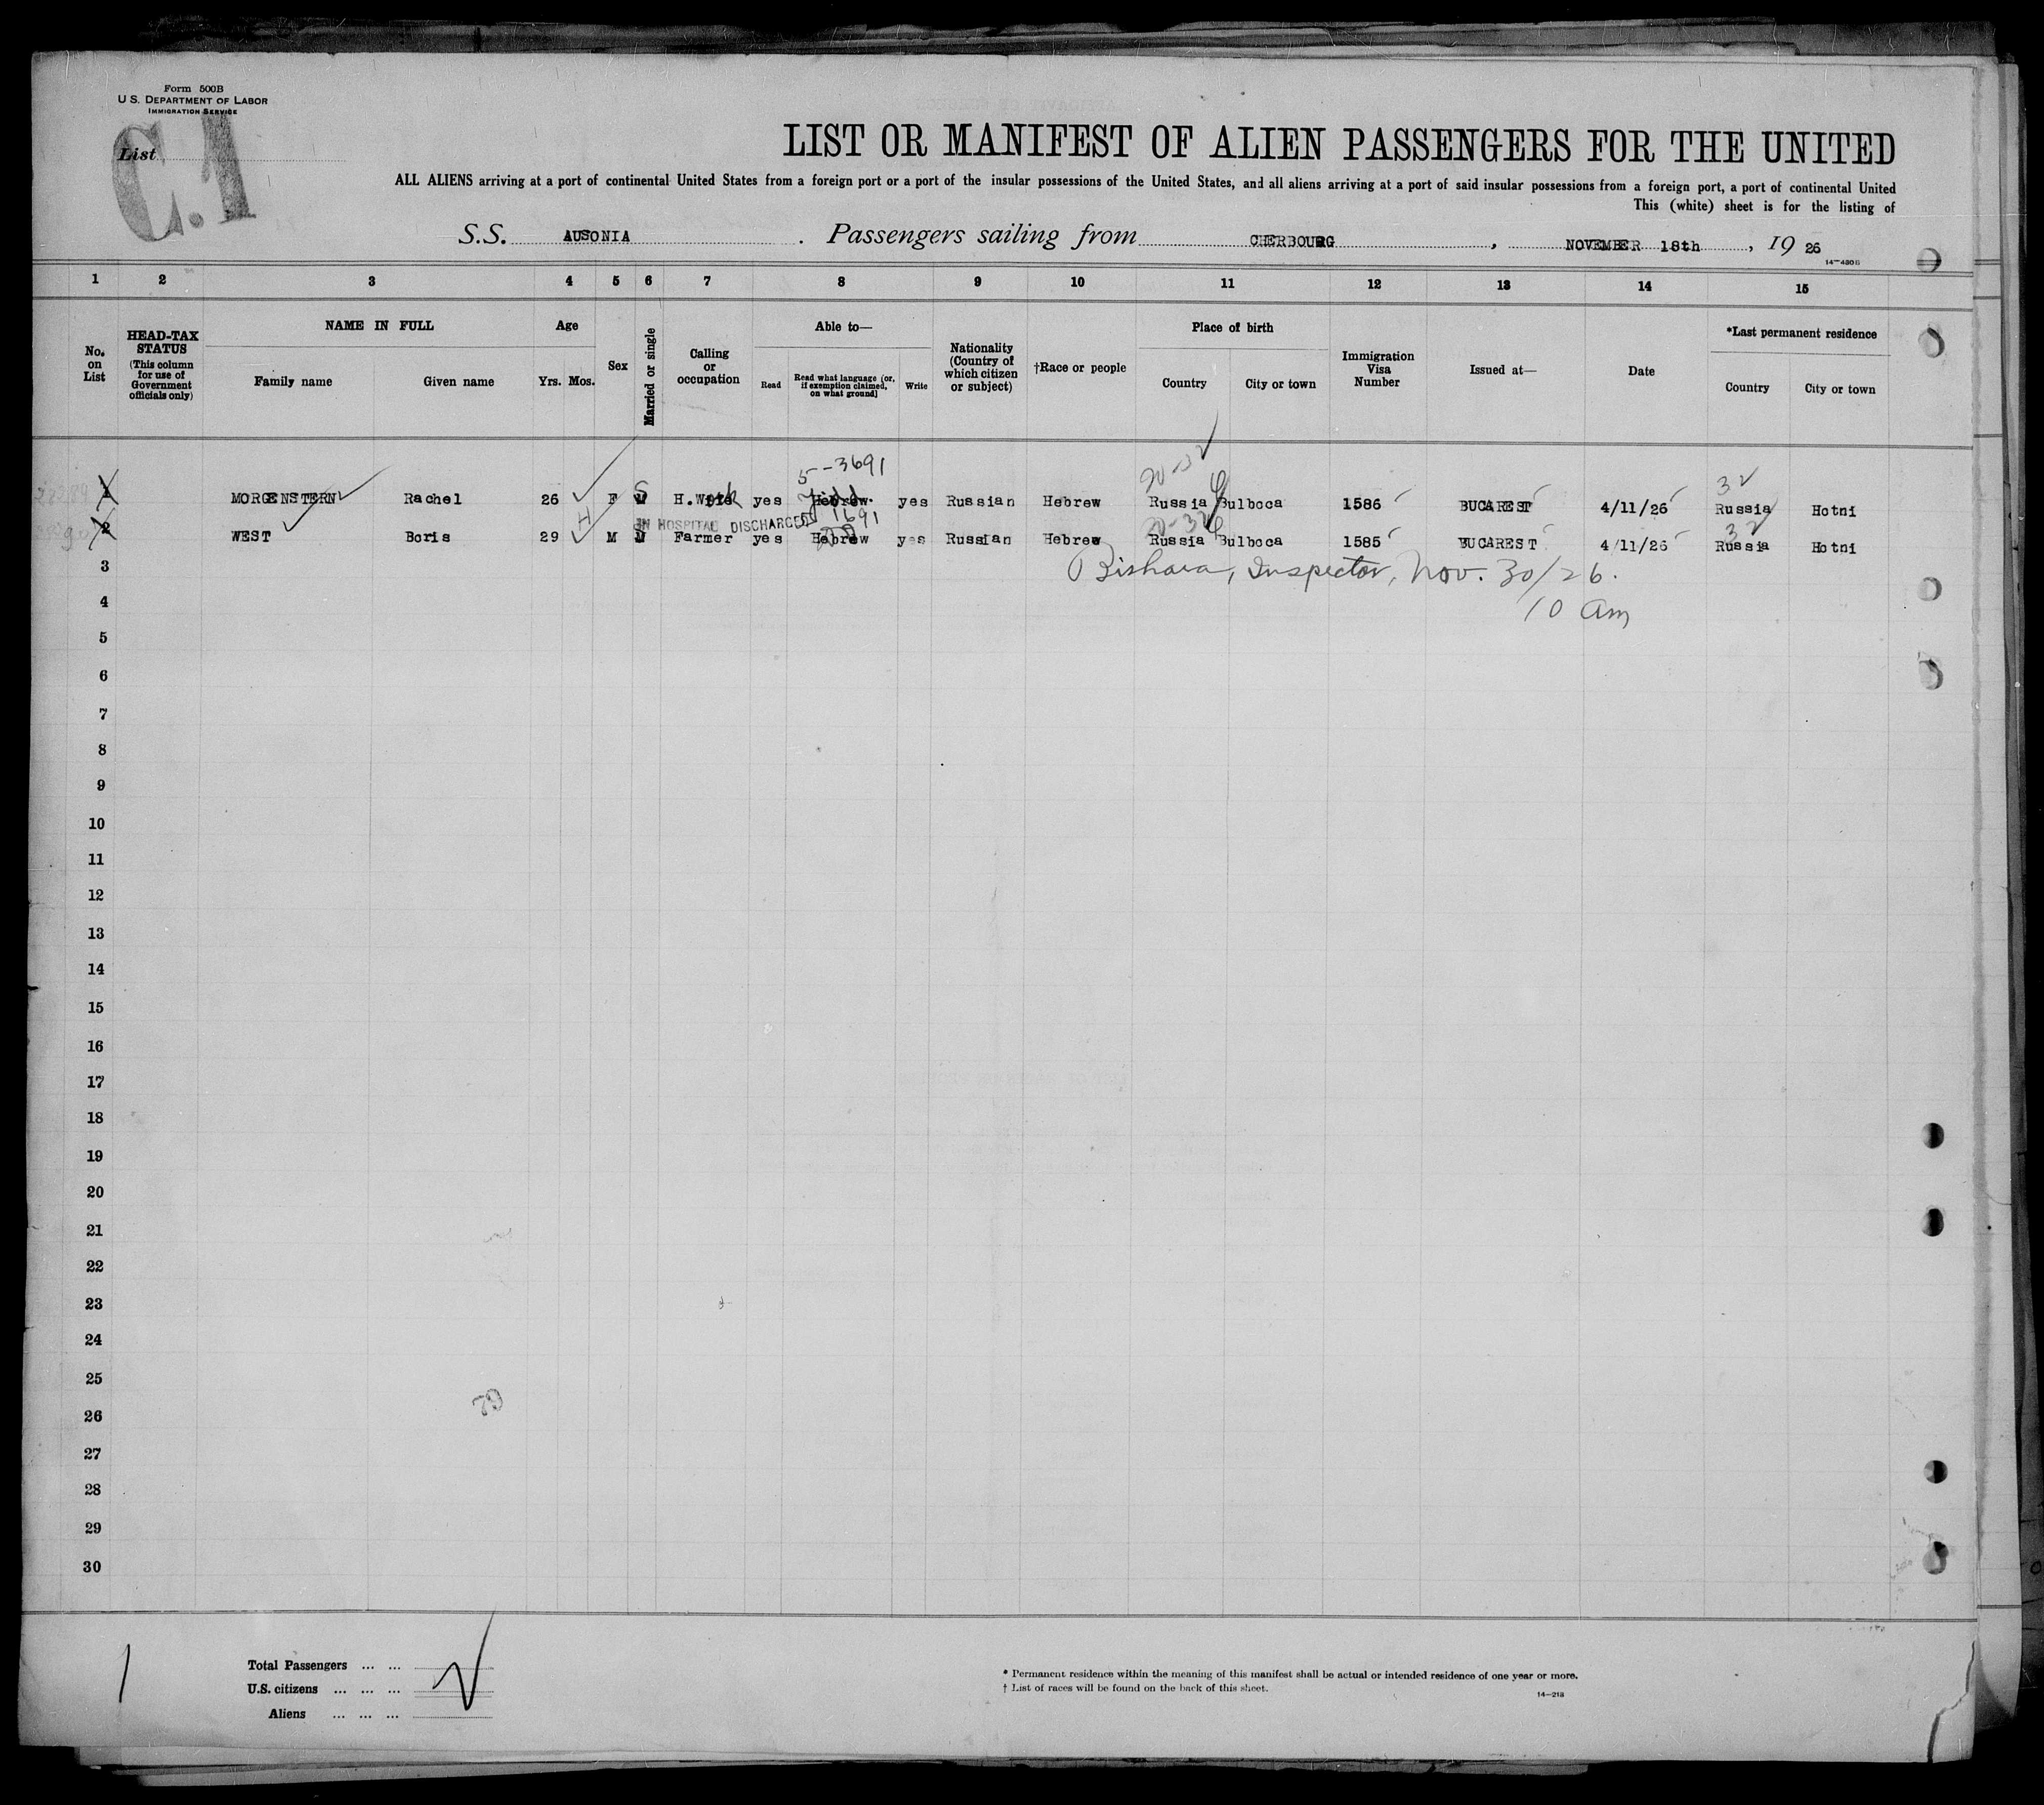 Form 500B
U.S. DEPARTMENT OF LABOR
IMMIGRATION SERVICE
C.1
List
LIST OR MANIFEST OF ALIEN PASSENGERS FOR THE UNITED
ALL ALIENS arriving at a port of continental United States from a foreign port or a port of the insular possessions of the United States, and all aliens arriving at a port of said insular possessions from a foreign port, a port of continental United
This (white) sheet is for the listing of
S.S. AUSONIA . Passengers sailing from CHERBOURG , NOVEMBER 18th , 19 26
14-430B
1 2 3 4 5 6 7 8 9 10 11 12 13 14 15
No. on List
HEAD-TAX STATUS (This column for use of Government officials only)
NAME IN FULL
Family name Given name
Age
Yrs. Mos.
Sex
Married or single
Calling or occupation
Able to—
Read
Read what language (or, if exemption claimed, on what ground)
Write
Nationality (Country of which citizen or subject)
†Race or people
Place of birth
Country City or town
Immigration Visa Number
Issued at—
Date
*Last permanent residence
Country City or town
5-3691 20-32 32
1 MORGENSTERN Rachel 26 F S H.Work yes Hebrew yes Russian Hebrew Russia Bulboca 1586 BUCAREST 4/11/26 Russia Hotni
IN HOSPITAL DISCHARGED 1691 20-32 32
2 WEST Boris 29 M S Farmer yes Hebrew yes Russian Hebrew Russia Bulboca 1585 BUCAREST 4/11/26 Russia Hotni
3 Bishara, Inspector, Nov. 30/26.
4 10 am
5
6
7
8
9
10
11
12
13
14
15
16
17
18
19
20
21
22
23
24
25
26
27
28
29
30
Total Passengers ... ...
U.S. citizens ... ... ...
Aliens ... ... ...
* Permanent residence within the meaning of this manifest shall be actual or intended residence of one year or more.
† List of races will be found on the back of this sheet.
14-218